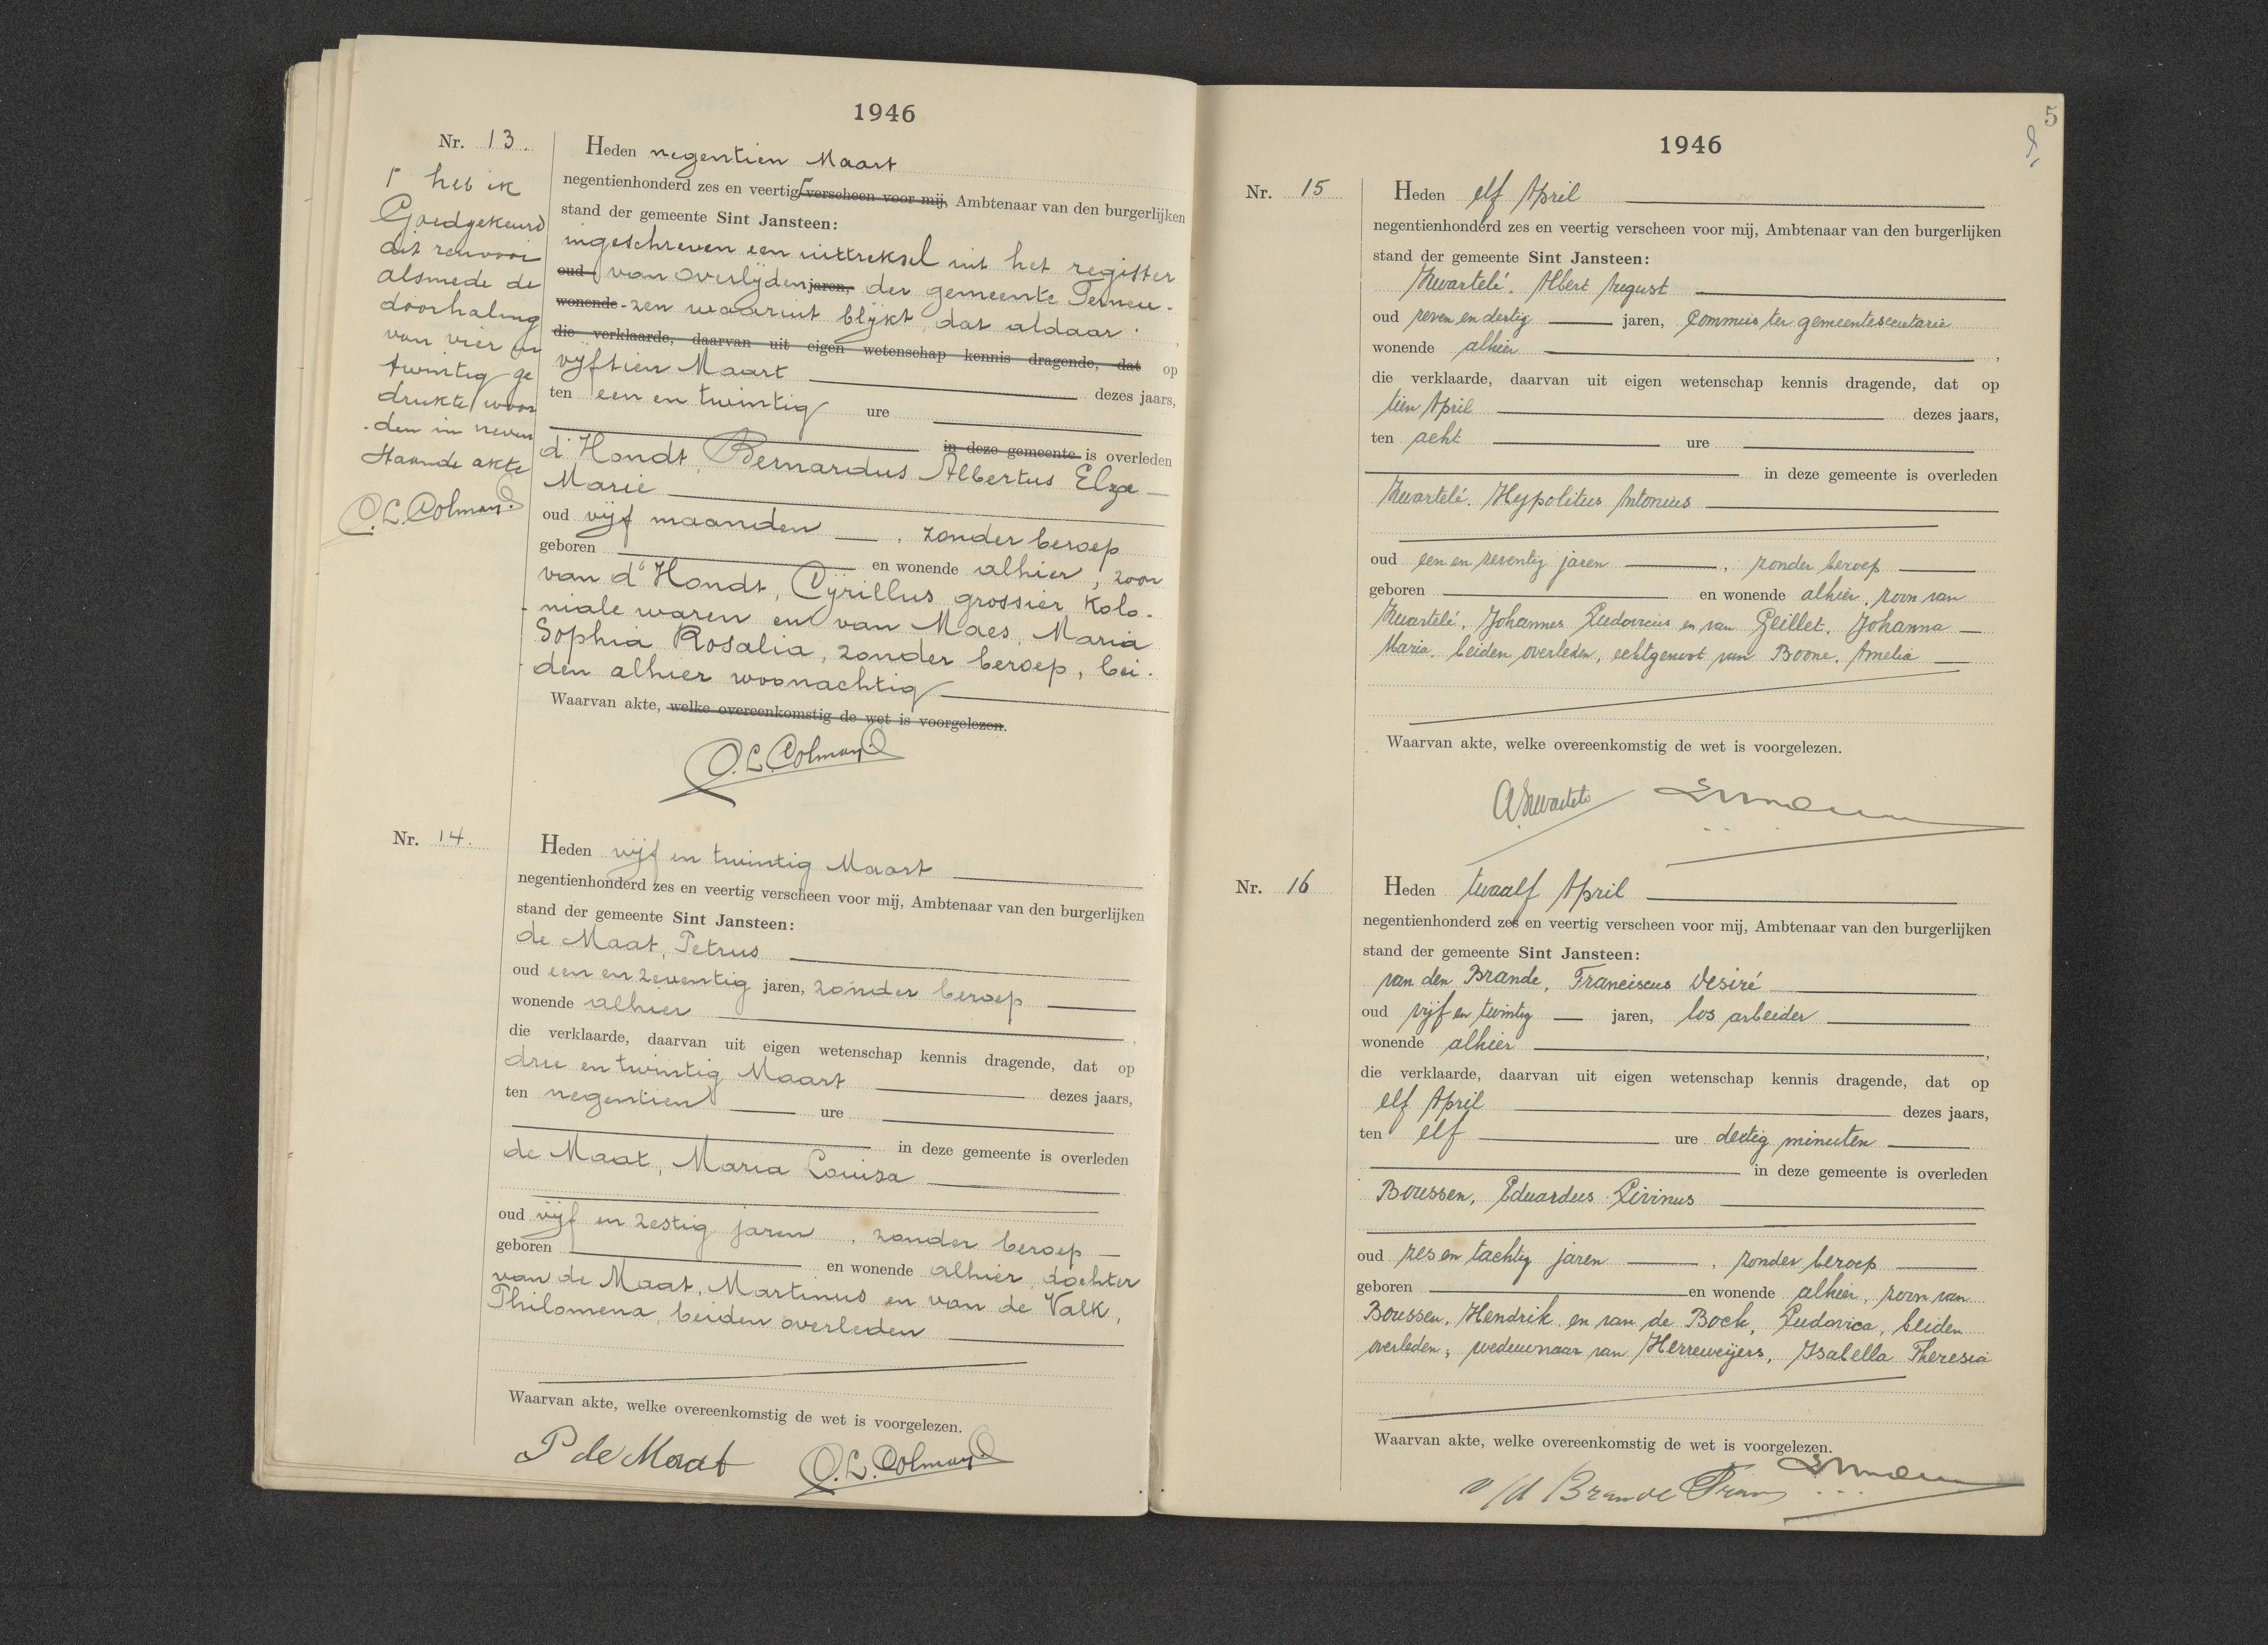 1946
Nr. 13.
Heden negentien Maart
negentienhonderd zes en veertig ⌈verscheen voor mij, Ambtenaar van den burgerlijken
stand der gemeente Sint Jansteen:
ingeschreven een uittreksel uit het register
oud van overlijden jaren, der gemeente Terneu-
wonende -zen waaruit blijkt, dat aldaar
die verklaarde, daarvan uit eigen wetenschap kennis dragende, dat op
vijftien Maart dezes jaars,
ten een en twintig ure
in deze gemeente is overleden
d'Hondt, Bernardus Albertus Elza
Marie
oud vijf maanden, zonder beroep
geboren en wonende alhier, zoon
van d'Hondt, Cyrillus grossier kolo-
niale waren en van Maes, Maria
Sophia Rosalia, zonder beroep, bei-
den alhier woonachtig
Waarvan akte, welke overeenkomstig de wet is voorgelezen.
C.L. Colman
⌈ heb ik
Goedgekeurd
dit renvooi
alsmede de
doorhaling
van vier en
twintig ge
drukte woor
den in neven
staande akte
C.L. Colman
Nr. 14.
Heden vijf en twintig Maart
negentienhonderd zes en veertig verscheen voor mij, Ambtenaar van den burgerlijken
stand der gemeente Sint Jansteen:
de Maat, Petrus
oud een en zeventig jaren, zonder beroep
wonende alhier,
die verklaarde, daarvan uit eigen wetenschap kennis dragende, dat op
drie en twintig Maart dezes jaars,
ten negentien ure
in deze gemeente is overleden
de Maat, Maria Louisa
oud vijf en zestig jaren, zonder beroep
geboren en wonende alhier, dochter
van de Maat, Martinus en van de Valk,
Philomena, beiden overleden
Waarvan akte, welke overeenkomstig de wet is voorgelezen.
P de Maat C.L. Colman
5
1946
Nr. 15
Heden elf April
negentienhonderd zes en veertig verscheen voor mij, Ambtenaar van den burgerlijken
stand der gemeente Sint Jansteen:
Kwartelé, Albert August
oud zeven en dertig jaren, commies ter gemeentesecretarie
wonende alhier,
die verklaarde, daarvan uit eigen wetenschap kennis dragende, dat op
tien April dezes jaars,
ten acht ure
in deze gemeente is overleden
Kwartelé, Hypolitus Antonius
oud een en zeventig jaren, zonder beroep
geboren en wonende alhier, zoon van
Kwartelé, Johannes Ludovicus en van Geillet, Johanna
Maria, beiden overleden, echtgenoot van Boone, Amelia
Waarvan akte, welke overeenkomstig de wet is voorgelezen.
A. Kwartelé
Nr. 16
Heden twaalf April
negentienhonderd zes en veertig verscheen voor mij, Ambtenaar van den burgerlijken
stand der gemeente Sint Jansteen:
van den Brande, Franciscus Desiré
oud vijf en twintig jaren, los arbeider
wonende alhier,
die verklaarde, daarvan uit eigen wetenschap kennis dragende, dat op
elf April dezes jaars,
ten elf ure dertig minuten
in deze gemeente is overleden
Boussen, Eduardus Livinus
oud zes en tachtig jaren, zonder beroep
geboren en wonende alhier, zoon van
Boussen, Hendrik en van de Bock, Ludovica, beiden
overleden, weduwnaar van Herreweijers, Isabella Theresia
Waarvan akte, welke overeenkomstig de wet is voorgelezen.
v/d Brande Frans